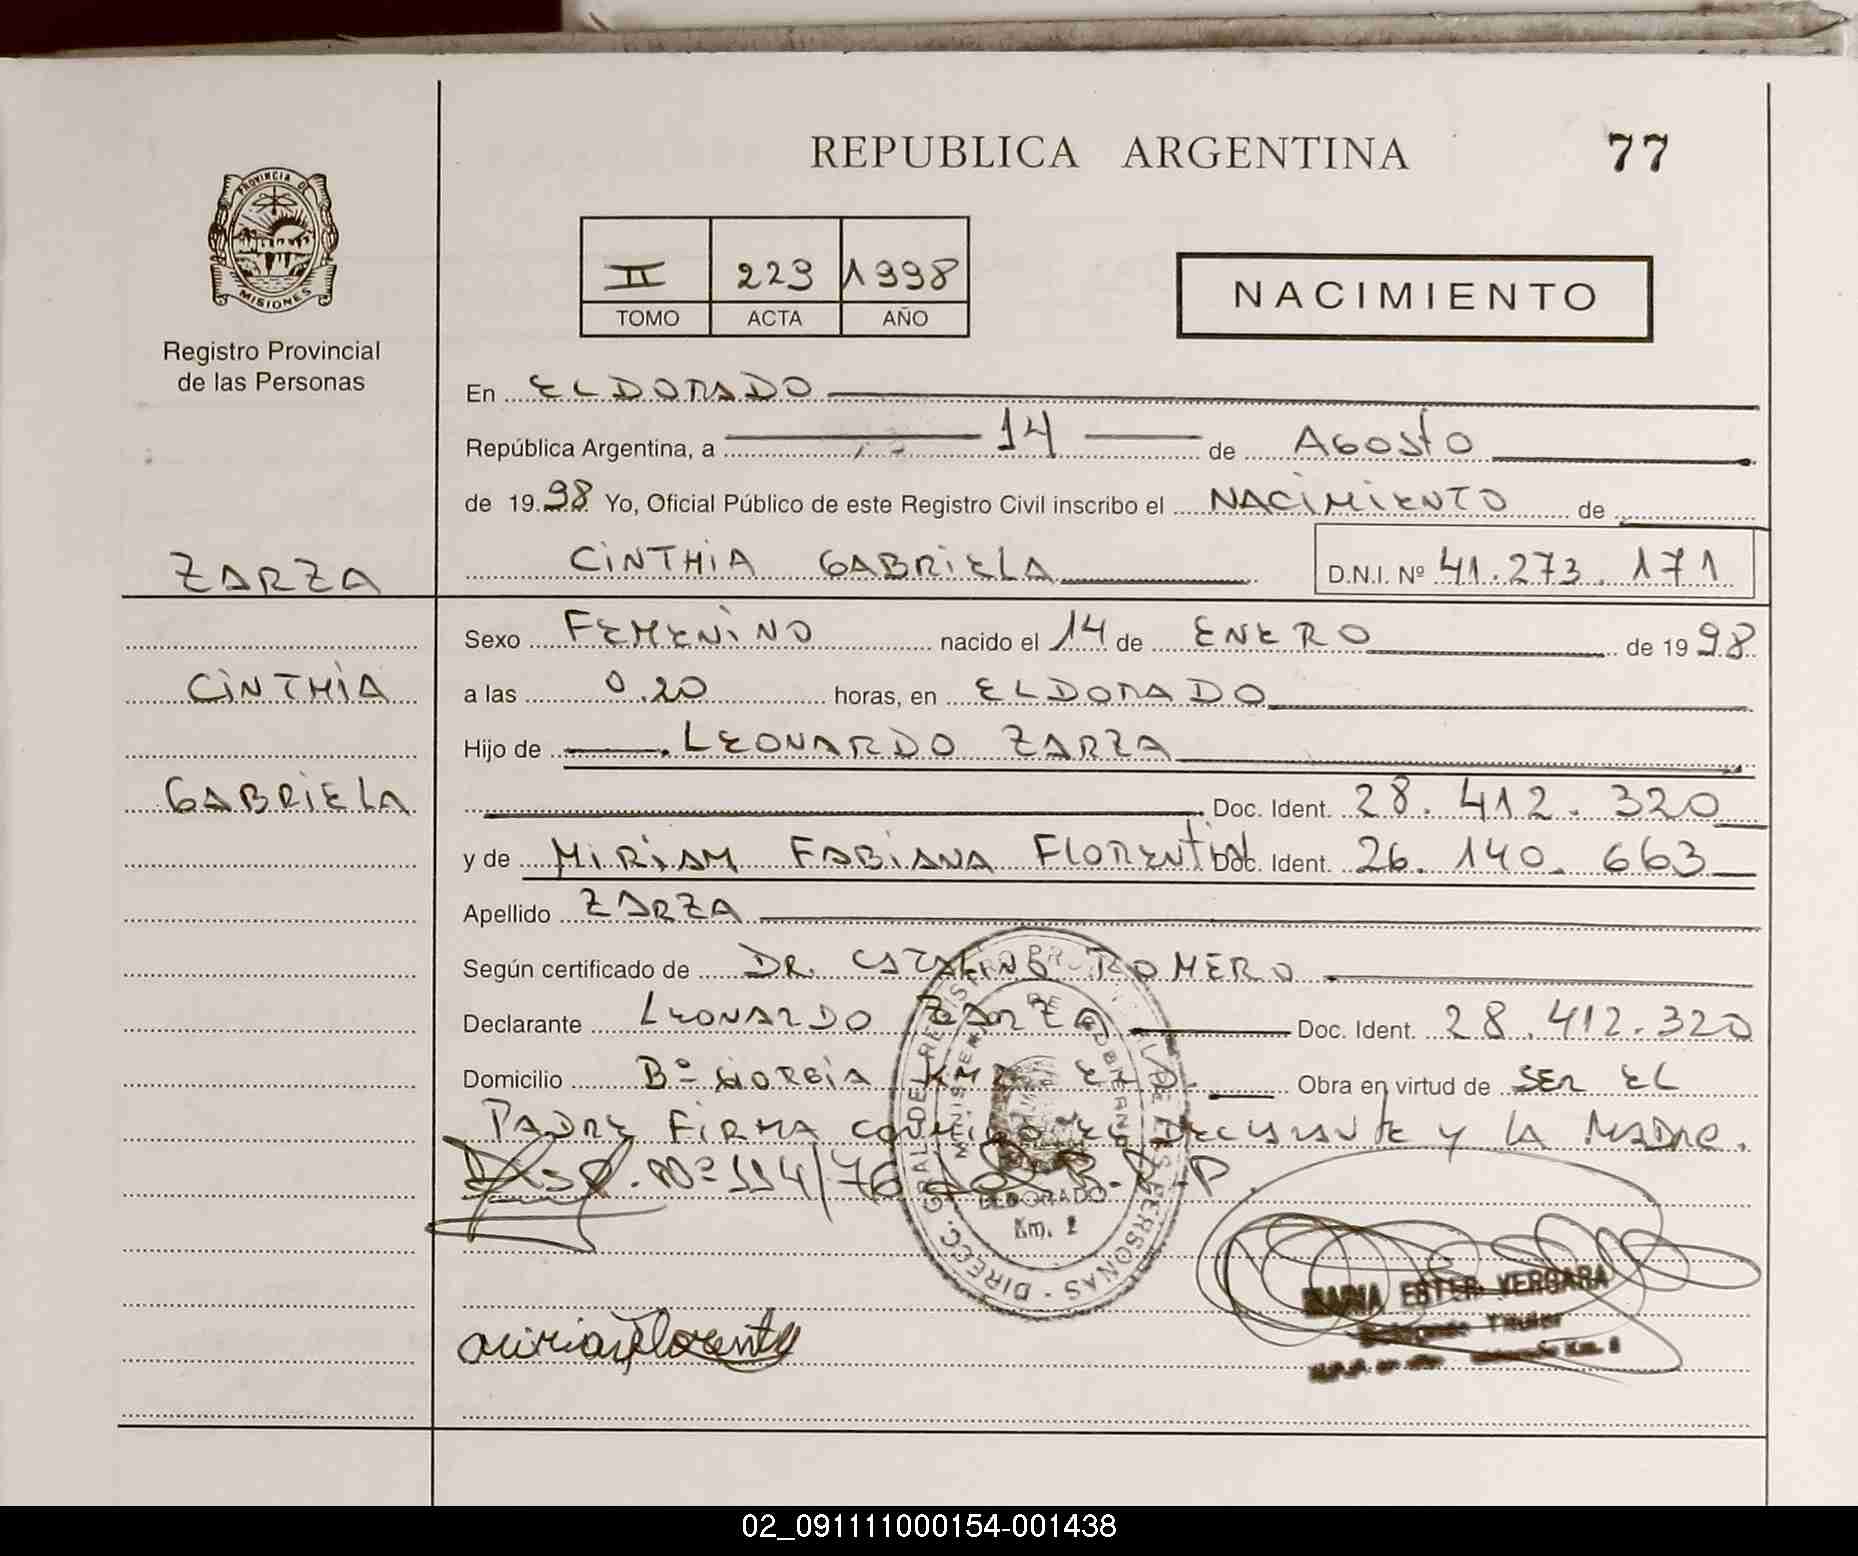 REPUBLICA ARGENTINA 77
PROVINCIA DE
MISIONES
Registro Provincial
de las Personas
II 229 1998
TOMO ACTA AÑO
NACIMIENTO
En ELDORADO
República Argentina, a 14 de AGOSTO
de 1998 Yo, Oficial Público de este Registro Civil inscribo el NACIMIENTO de
ZARZA
CINTHIA GABRIELA D.N.I. Nº 41.273.171
Sexo FEMENINO nacido el 14 de ENERO de 1998
CINTHIA
a las 0.20 horas, en ELDORADO
Hijo de LEONARDO ZARZA
GABRIELA
Doc. Ident. 28.412.320
y de MIRIAM FABIANA FLORENTIN Doc. Ident. 26.140.663
Apellido ZARZA
Según certificado de DR. CATALINO ROMERO
Declarante LEONARDO ZARZA Doc. Ident. 28.412.320
Domicilio Bº Obra en virtud de SER EL
PADRE FIRMA EL DECLARANTE Y LA MADRE.
Disp. Nº 114/76 R.P.P.
DIRECC. GRAL DE REGISTRO PROVINCIAL DE LAS PERSONAS
MINISTERIO DE GOBIERNO
ELDORADO
Km. 2
MARIA ESTER VERGARA
Titular
Miriam Florentin
02_091111000154-001438